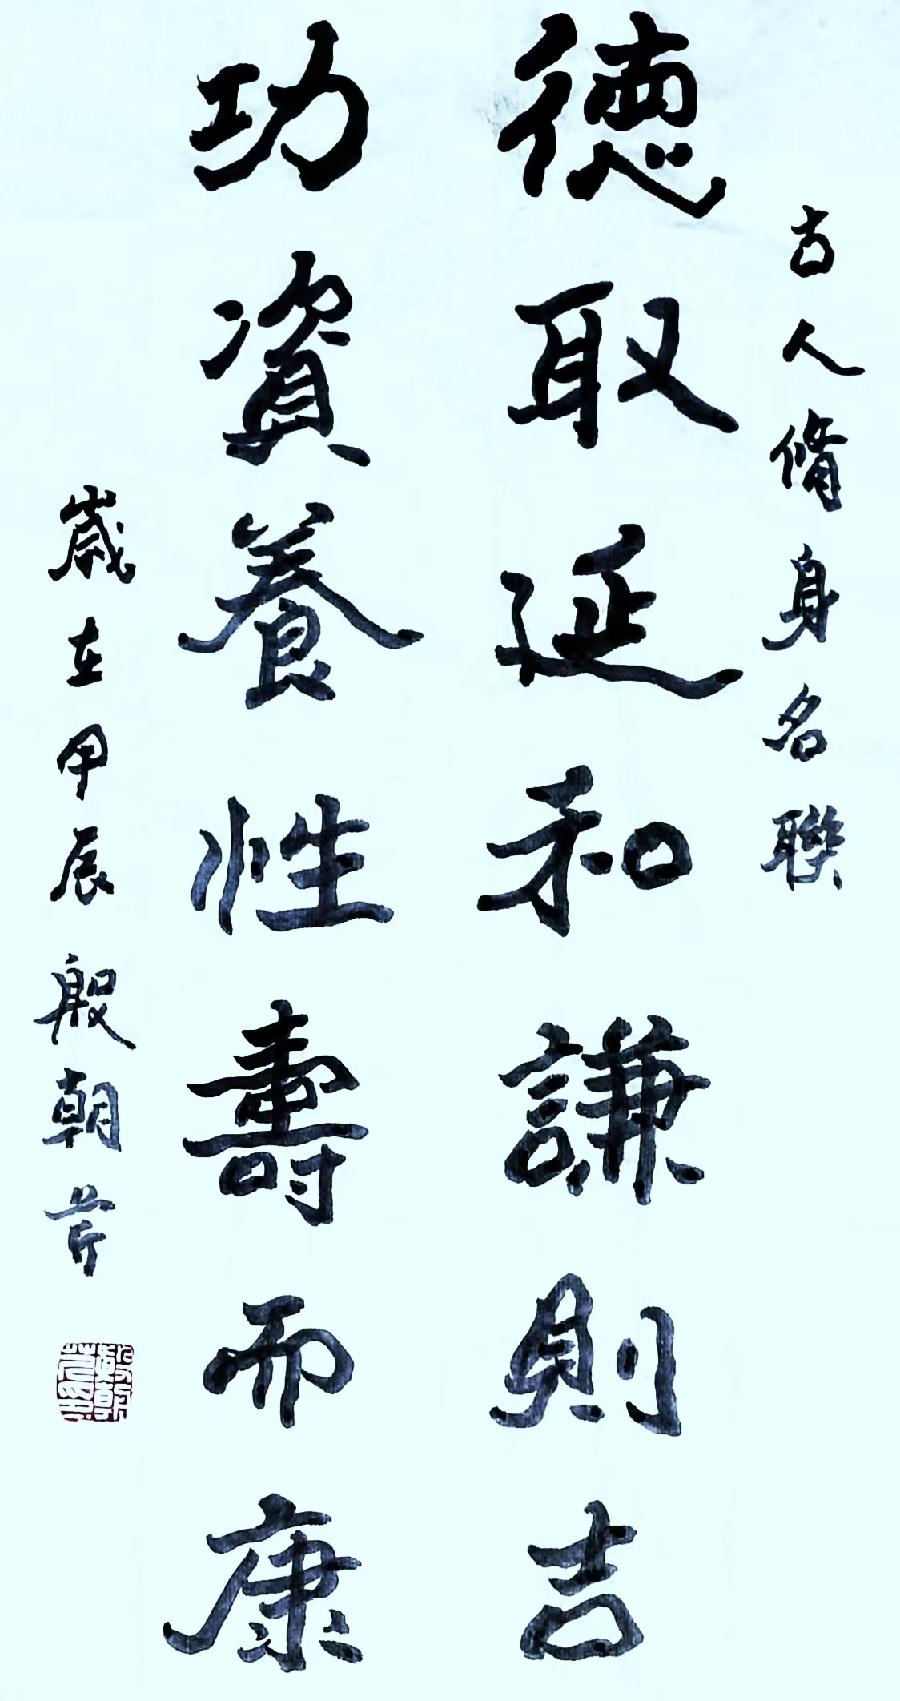 古人脩身名聯
德取延和謙則吉
功資養性壽而康
歲在甲辰殷朝芹